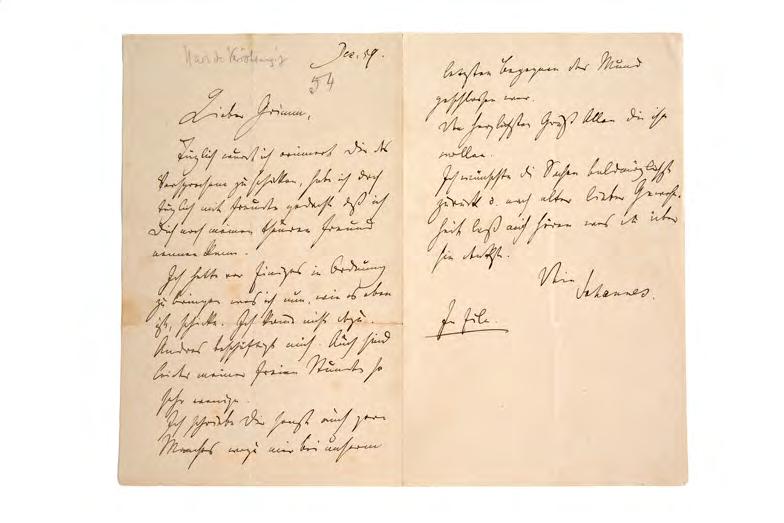 Dec. 59.
54
Lieber Grimm,
Täglich ich erinnert Dir das
Versprochene zu schicken, habe ich doch
täglich mit Freude gedacht daß ich
Dich noch meinen theuren Freund
nennen kann.
Ich hatte vor Einiges in Ordnung
zu bringen was ich nun, wie es eben
ist, schicke. Ich komme nicht dazu.
Andres beschäftigt mich. Auch sind
leider meiner freien Stunden so
sehr wenige.
Ich schriebe Dir sonst auch gern
Manches wozu mir bei unserm
letzten Begegnen der Mund
geschlossen war.
Den herzlichsten Gruß Allen die ihn
wollen.
Ich wünschte die Sachen baldmöglichst
zurück u. nach alter lieber Gewohn-
heit laß auch hören was Du über
sie denkst.
Dein
Johannes.
In Eile.